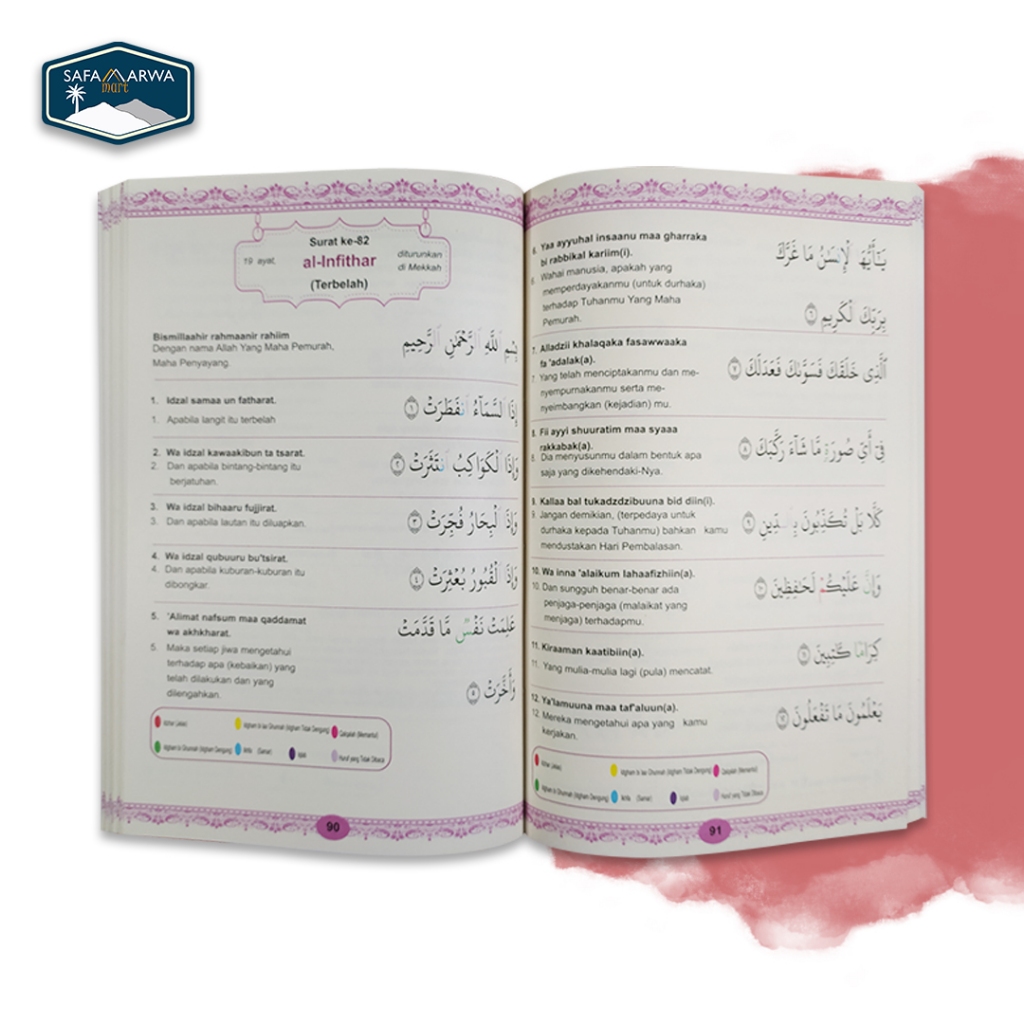 SAFA MARWA
mart
Surat ke-82
19 ayat,
al-Infithar
diturunkan
di Mekkah
(Terbelah)
Bismillaahir rahmaanir rahiim
Dengan nama Allah Yang Maha Pemurah,
Maha Penyayang.
بِسْمِ اللَّهِ الرَّحْمَٰنِ الرَّحِيمِ
1. Idzal samaa un fatharat.
1. Apabila langit itu terbelah
إِذَا السَّمَآءُ انْفَطَرَتْ ١
2. Wa idzal kawaakibun ta tsarat.
2. Dan apabila bintang-bintang itu
berjatuhan.
وَإِذَا الْكَوَاكِبُ انْتَثَرَتْ ٢
3. Wa idzal bihaaru fujjirat.
3. Dan apabila lautan itu diluapkan.
وَإِذَا الْبِحَارُ فُجِّرَتْ ٣
4. Wa idzal qubuuru bu'tsirat.
4. Dan apabila kuburan-kuburan itu
dibongkar.
وَإِذَا الْقُبُورُ بُعْثِرَتْ ٤
5. 'Alimat nafsum maa qaddamat
wa akhkharat.
5. Maka setiap jiwa mengetahui
terhadap apa (kebaikan) yang
telah dilakukan dan yang
dilengahkan.
عَلِمَتْ نَفْسٌ مَّا قَدَّمَتْ
وَأَخَّرَتْ ٥
Idzhar (Jelas)
Idgham bi laa Ghunnah (Idgham Tidak Dengung)
Qalqalah (Memantul)
Idgham bi Ghunnah (Idgham Dengung)
Ikhfa (Samar)
Iqlab
Huruf yang Tidak Dibaca
90
6. Yaa ayyuhal insaanu maa gharraka
bi rabbikal kariim(i).
6. Wahai manusia, apakah yang
memperdayakanmu (untuk durhaka)
terhadap Tuhanmu Yang Maha
Pemurah.
يَٰٓأَيُّهَا الْإِنسَٰنُ مَا غَرَّكَ
بِرَبِّكَ الْكَرِيمِ ٦
7. Alladzii khalaqaka fasawwaaka
fa 'adalak(a).
7. Yang telah menciptakanmu dan me-
nyempurnakanmu serta me-
nyeimbangkan (kejadian) mu.
الَّذِى خَلَقَكَ فَسَوَّىٰكَ فَعَدَلَكَ ٧
8. Fii ayyi shuuratim maa syaaa
rakkabak(a).
8. Dia menyusunmu dalam bentuk apa
saja yang dikehendaki-Nya.
فِىٓ أَىِّ صُورَةٍ مَّا شَآءَ رَكَّبَكَ ٨
9. Kallaa bal tukadzdzibuuna bid diin(i).
9. Jangan demikian, (terpedaya untuk
durhaka kepada Tuhanmu) bahkan kamu
mendustakan Hari Pembalasan.
كَلَّا بَلْ تُكَذِّبُونَ بِالدِّينِ ٩
10. Wa inna 'alaikum lahaafizhiin(a).
10. Dan sungguh benar-benar ada
penjaga-penjaga (malaikat yang
menjaga) terhadapmu.
وَإِنَّ عَلَيْكُمْ لَحَٰفِظِينَ ١٠
11. Kiraaman kaatibiin(a).
11. Yang mulia-mulia lagi (pula) mencatat.
كِرَامًا كَٰتِبِينَ ١١
12. Ya'lamuuna maa taf'aluun(a).
12. Mereka mengetahui apa yang kamu
kerjakan.
يَعْلَمُونَ مَا تَفْعَلُونَ ١٢
Idzhar (Jelas)
Idgham bi laa Ghunnah (Idgham Tidak Dengung)
Qalqalah (Memantul)
Idgham bi Ghunnah (Idgham Dengung)
Ikhfa (Samar)
Iqlab
Huruf yang Tidak Dibaca
91